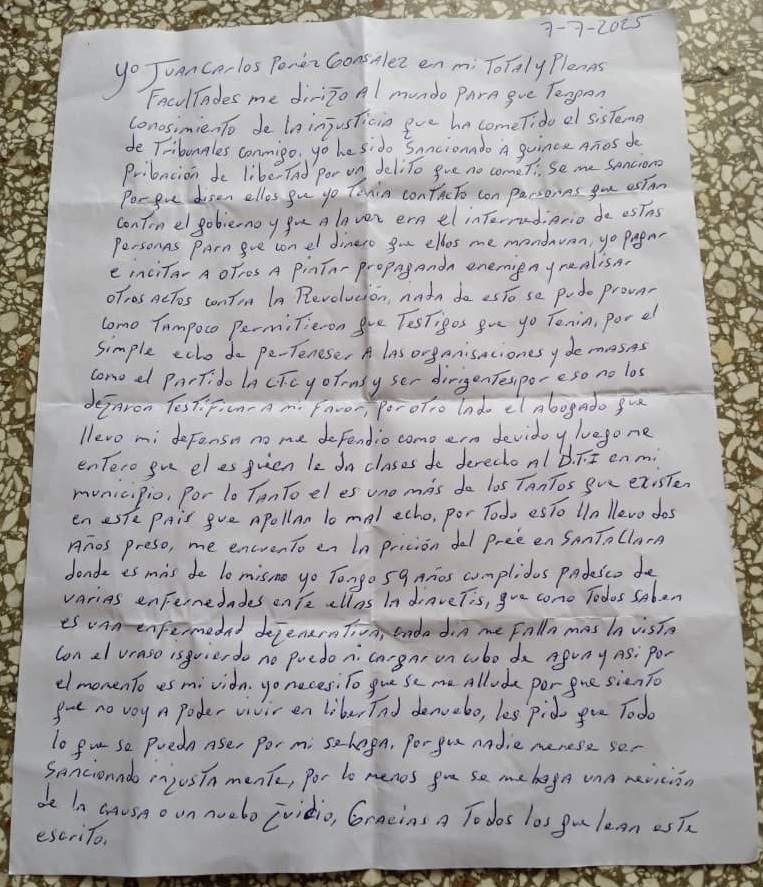 7-7-2025
yo Juan Carlos Peréz Gonsalez en mi Total y Plenas
Facultades me dirijo al mundo para que Tengan
conosimiento de la injusticia que ha cometido el sistema
de Tribunales conmigo, yo he sido Sancionado a quince años de
Pribación de libertad por un delito que no cometi. Se me Sanciono
Porque disen ellos que yo Tenia contacto con personas que estan
contra el gobierno y que a la vez era el intermediario de estas
Personas para que con el dinero que ellos me mandavan, yo pagar
e incitar a otros a pintar propaganda enemiga y realisar
otros actos contra la Revolución, nada de esto se pudo provar
como Tampoco permitieron que Testigos que yo Tenia, por el
simple echo de perteneser a las organisaciones y de masas
como el Partido la CTC y otras y ser dirigentes por eso no los
dejaron Testificar a mi Favor, por otro lado el abogado que
llevo mi defensa no me defendio como era devido y luego me
entero que el es quien le da clases de derecho al D.T.I en mi
municipio, por lo Tanto el es uno más de los Tantos que existen
en este pais que apollan lo mal echo, por Todo esto lla llevo dos
años preso, me encuento en la prición del Pree en Santa Clara
donde es más de lo mismo yo Tengo 59 años cumplidos padesco de
varias enfernedades ente ellas la diavetis, que como Todos saben
es una enfermedad dejenerativa, cada dia me Falla mas la vista
con el vraso isguierdo no puedo ni cargar un cubo de agua y asi por
el momento es mi vida. yo necesito que se me allude porque siento
que no voy a poder vivir en libertad denuebo, les pido que Todo
lo que se pueda aser por mi se haga, porque nadie merese ser
Sancionado injusta mente, por lo menos que se me haga una revición
de la causa o un nuebo juidio, Gracias a Todos los que lean este
escrito.